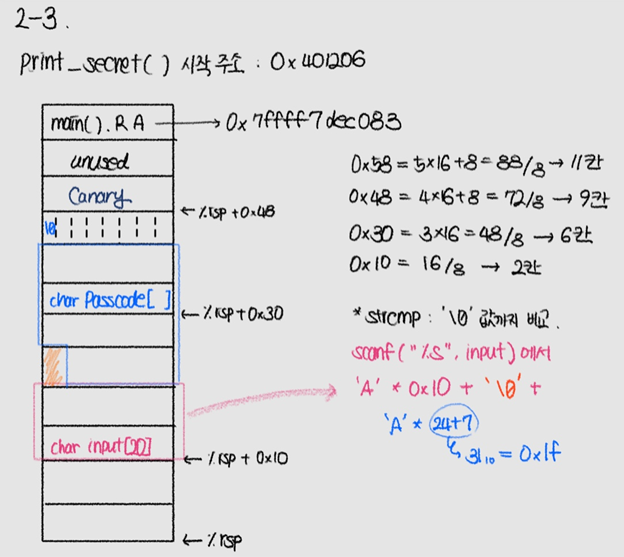 2-3.
print_secret() 시작 주소 : 0x401206
main().RA → 0x7ffff7dec083
unused
Canary
← %rsp+0x48
\0
char Passcode[ ]
← %rsp+0x30
char input[20]
← %rsp + 0x10
← %rsp
0x58 = 5×16+8 = 88/8 → 11칸
0x48 = 4×16+8 = 72/8 → 9칸
0x30 = 3×16 = 48/8 → 6칸
0x10 = 16/8 → 2칸
* strcmp : '\0' 값까지 비교.
scanf("%s", input) 에서
'A' * 0x10 + '\0' +
'A' * 24+7
31₁₀ = 0x1f